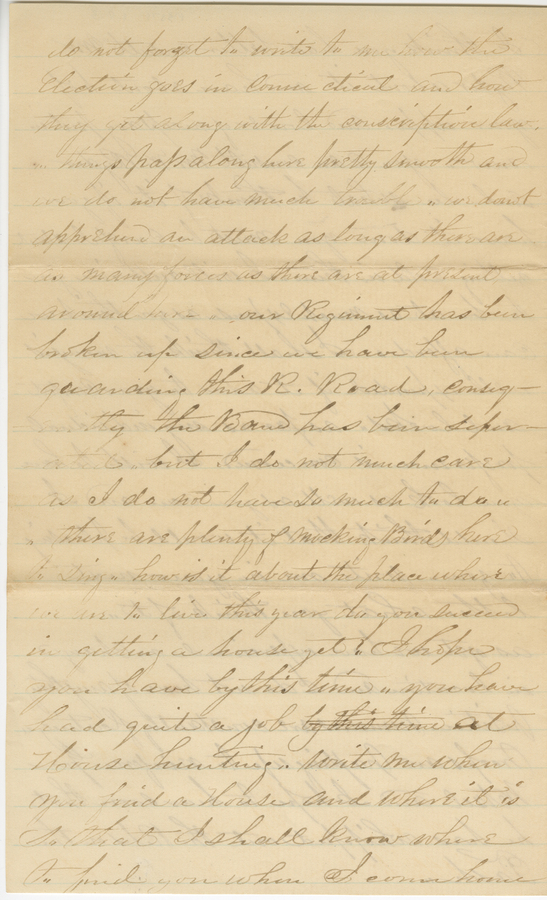 do not forget to write to me how the
Election goes in connecticut and how
they get along with the conscription law.
" things pass along here pretty smooth and
we do not have much trouble " we dont
apprehend an attack as long as there are
as many forces as there are at present
around here " our Regiment has been
broken up since we have been
guarding this R. Road, conseq-
tly the Band has been seper-
ated " but I do not much care
as I do not have so much to do "
" there are plenty of mocking Birds here
to sing " how is it about the place where
we are to live this year do you succeed
in getting a house yet " I hope
you have by this time " you have
had quite a job by this time at
House hunting " write me when
you find a House and where it is
so that I shall know where
to find you when I come home